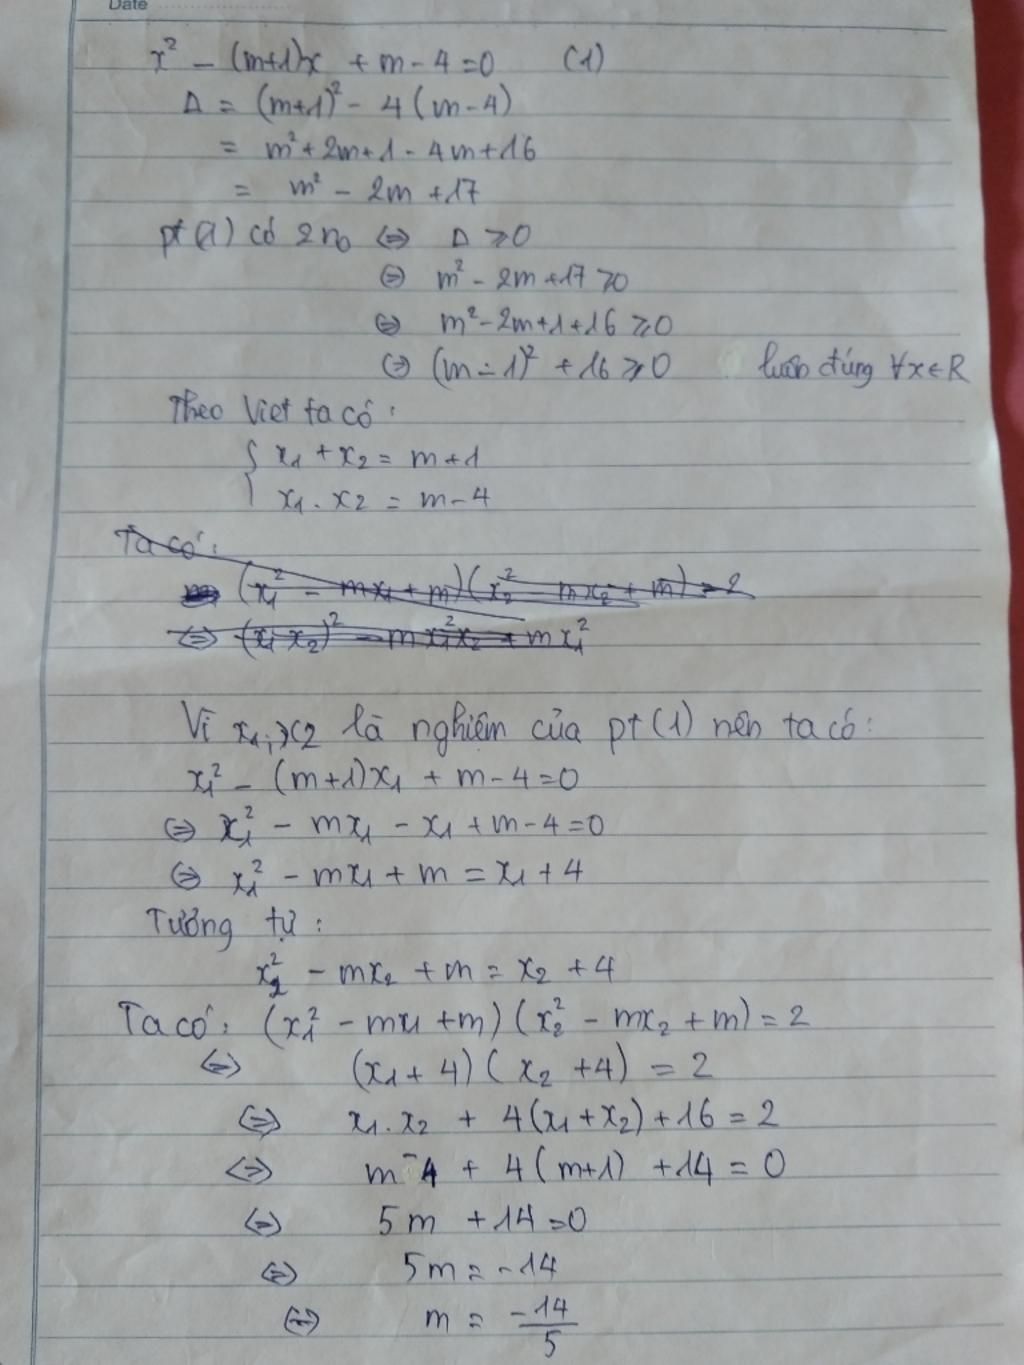 Date
x² - (m+1)x + m - 4 = 0 (1)
Δ = (m+1)² - 4(m-4)
= m² + 2m + 1 - 4m + 16
= m² - 2m + 17
pt (1) có 2 n₀ ⇔ Δ ≥ 0
⇔ m² - 2m + 17 ≥ 0
⇔ m² - 2m + 1 + 16 ≥ 0
⇔ (m - 1)² + 16 ≥ 0 luôn đúng ∀x ∈ R
Theo Viet ta có:
{ x₁ + x₂ = m+1
x₁ . x₂ = m - 4
Ta có:
(x₁² - mx₁ + m)(x₂² - mx₂ + m) = 2
⇔ (x₁ x₂)² - m x₁² x₂ + m x₁²
Vì x₁; x₂ là nghiệm của pt (1) nên ta có:
x₁² - (m+1)x₁ + m - 4 = 0
⇔ x₁² - mx₁ - x₁ + m - 4 = 0
⇔ x₁² - mx₁ + m = x₁ + 4
Tương tự:
x₂² - mx₂ + m = x₂ + 4
Ta có: (x₁² - mx₁ + m)(x₂² - mx₂ + m) = 2
⇔ (x₁ + 4)(x₂ + 4) = 2
⇔ x₁.x₂ + 4(x₁ + x₂) + 16 = 2
⇔ m - 4 + 4(m+1) + 14 = 0
⇔ 5m + 14 = 0
⇔ 5m = -14
⇔ m = -14/5